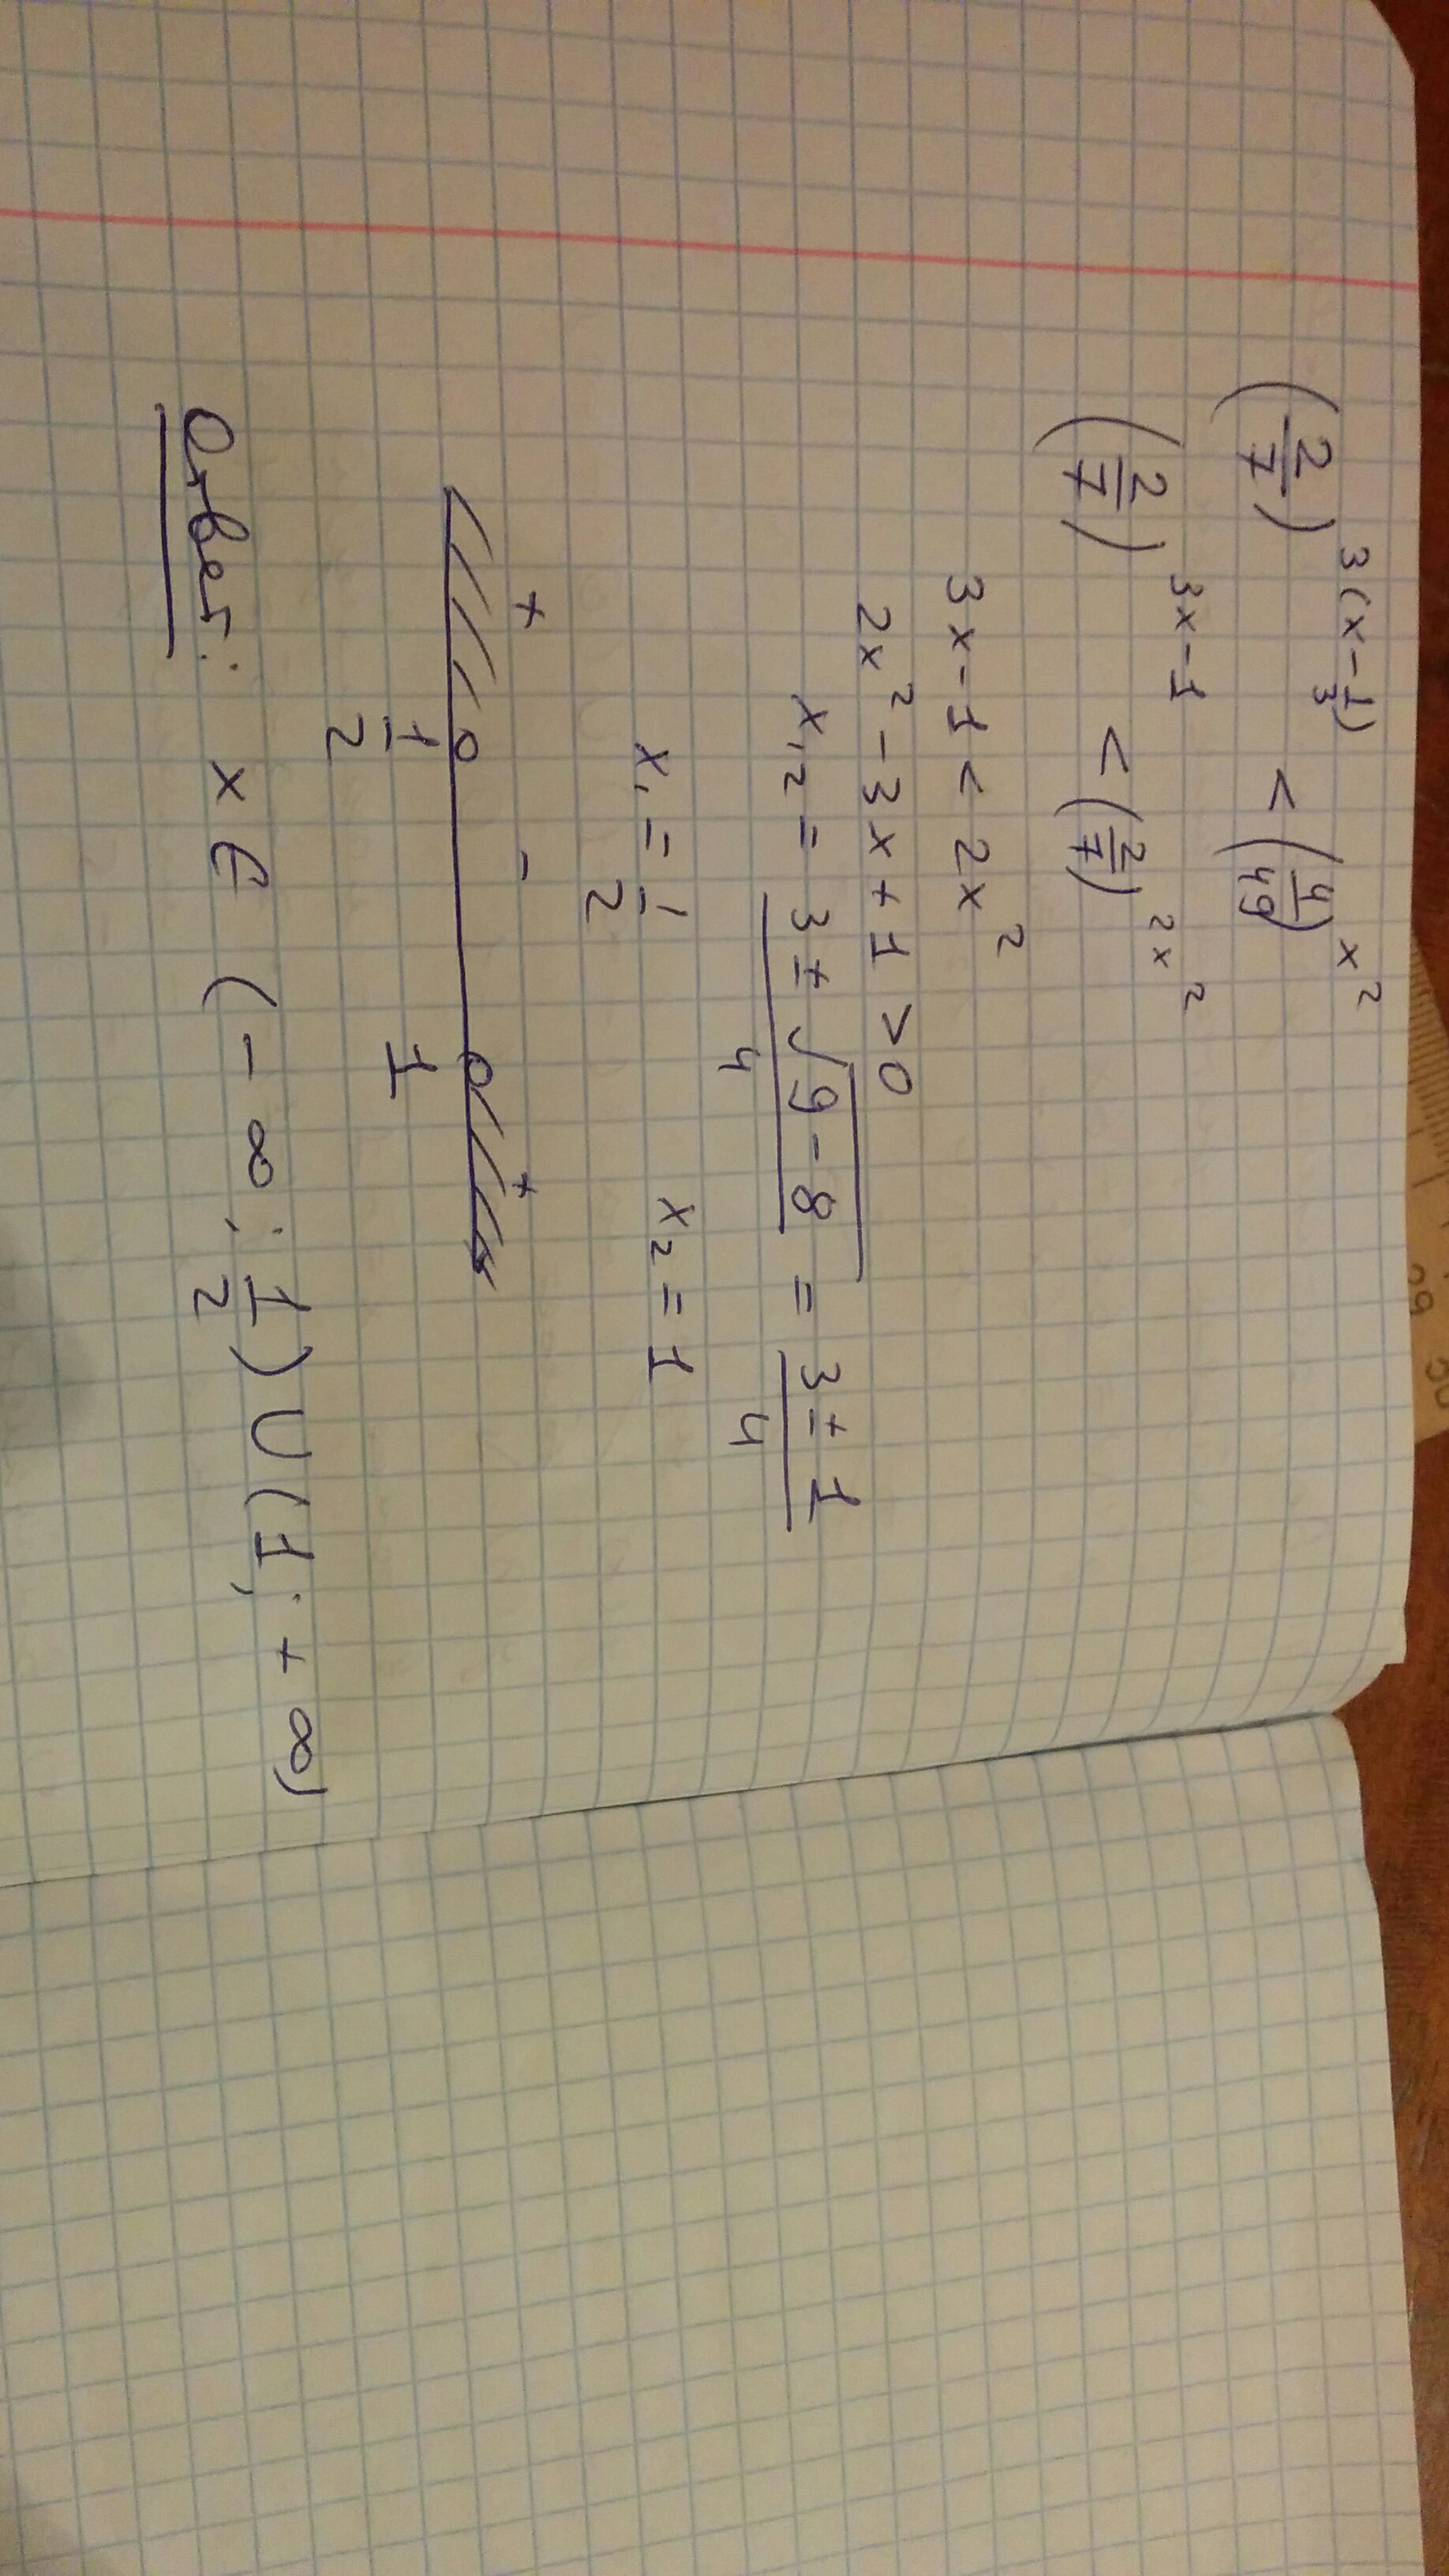 (2/7)^3(x-1/3) < (4/49)^x^2
(2/7)^3x-1 < (2/7)^2x^2
3x-1 < 2x^2
2x^2-3x+1 >0
x_1,2 = (3±√(9-8))/4 = (3±1)/4
x_1 = 1/2 x_2 = 1
+ - +
1/2 1
Ответ: x ∈ (-∞; 1/2) ∪ (1; +∞)
29
30